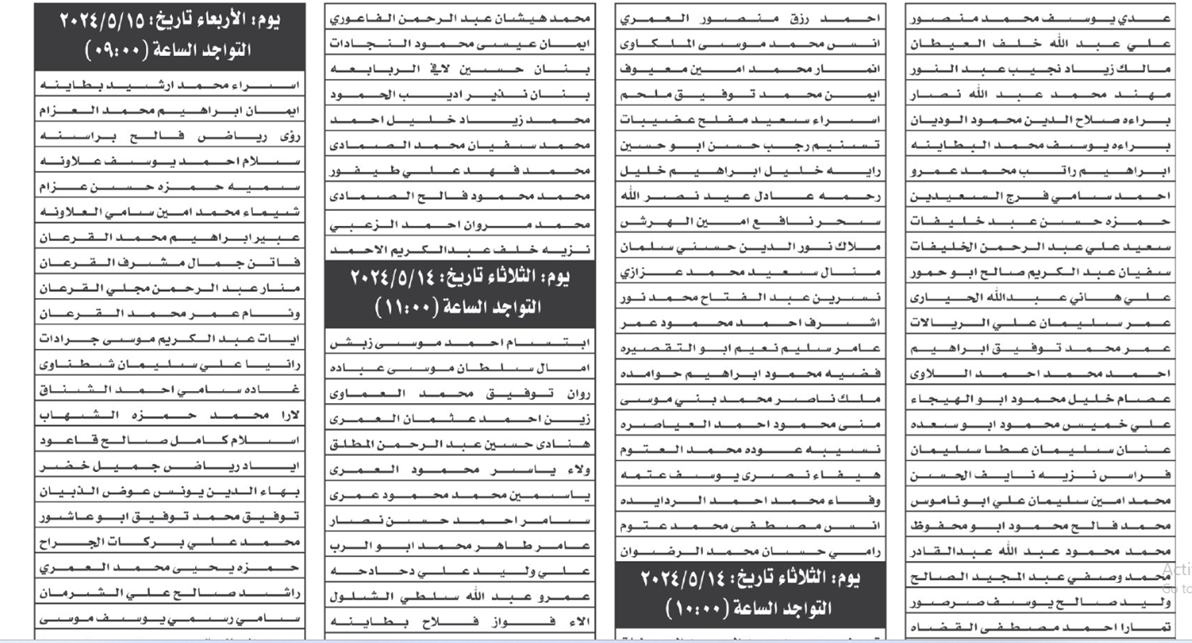 عدي يوسف محمد منصور
علي عبد الله خلف العيطان
مالك زياد نجيب عبد النور
مهند محمد عبد الله نصار
براءه صلاح الدين محمود الوديان
براءه يوسف محمد البطاينه
ابراهيم راتب محمد عمرو
احمد سامي فرج السعيدين
حمزه حسن عبد خليفات
سعيد علي عبد الرحمن الخليفات
سفيان عبد الكريم صالح ابو حمور
علي هاني عبدالله الحيارى
عمر سليمان علي الريالات
عمر محمد توفيق ابراهيم
احمد محمد احمد اللاوى
عصام خليل محمود ابو الهيجاء
علي خميس محمود ابو سعده
عنان سليمان عطا سليمان
فراس نزيه نايف الحسن
محمد امين سليمان علي ابو ناموس
محمد فالح محمود ابو محفوظ
محمد محمود عبد الله عبدالقادر
محمد وصفي عبد المجيد الصالح
وليد صالح يوسف صرصور
تمارا احمد مصطفى القضاه
احمد رزق منصور العمري
انس محمد موسى الملكاوى
انمار محمد امين معيوف
ايمن محمد توفيق ملحم
اسراء سعيد مفلح عضيبات
تسنيم رجب حسن ابو حسين
رايه خليل ابراهيم خليل
رحمه عادل عيد نصر الله
سحر نافع امين الهرش
ملاك نور الدين حسني سلمان
منال سعيد محمد عزازي
نسرين عبد الفتاح محمد نور
اشرف احمد محمود عمر
عامر سليم نعيم ابو التقصيره
فضيه محمود ابراهيم حوامده
ملك ناصر محمد بني موسى
منى محمود احمد العياصره
نسيبه عوده محمد العتوم
هيفاء نصرى يوسف عتمه
وفاء محمد احمد الردايده
انس مصطفى محمد عتوم
رامي حسان محمد الرضوان
يوم: الثلاثاء تاريخ: ٢٠٢٤/٥/١٤
التواجد الساعة (١٠:٠٠)
محمد هيشان عبد الرحمن الفاعوري
ايمان عيسى محمود النجادات
بنان حسين لافي الربابعه
بنان نذير اديب الحمود
محمد زياد خليل احمد
محمد سفيان محمد الصمادى
محمد فهد علي طيفور
محمد محمود فالح الصمادى
محمد مروان احمد الزعبي
نزيه خلف عبدالكريم الاحمد
يوم: الثلاثاء تاريخ: ٢٠٢٤/٥/١٤
التواجد الساعة (١١:٠٠)
ابتسام احمد موسى زبش
امال سلطان موسى عباده
روان توفيق محمد العماوى
زين احمد عثمان العمرى
هنادى حسين عبد الرحمن المطلق
ولاء ياسر محمود العمرى
ياسمين محمد محمود عمرى
سامر احمد حسن نصار
عامر طاهر محمد ابو الرب
علي وليد علي دحادحه
عمرو عبد الله سلطي الشلول
الاء فواز فلاح بطاينه
يوم: الأربعاء تاريخ: ٢٠٢٤/٥/١٥
التواجد الساعة (٠٩:٠٠)
اسراء محمد ارشيد بطاينه
ايمان ابراهيم محمد العزام
رؤى رياض فالح براسنه
سلام احمد يوسف علاونه
سميه حمزه حسن عزام
شيماء محمد امين سامي العلاونه
عبير ابراهيم محمد القرعان
فاتن جمال مشرف القرعان
منار عبد الرحمن مجلي القرعان
ونام عمر محمد القرعان
ايات عبد الكريم موسى جرادات
رانيا علي سليمان شطناوى
غاده سامي احمد الشناق
لارا محمد حمزه الشهاب
اسلام كامل صالح قاعود
اياد رياض جميل خضر
بهاء الدين يونس عوض الذبيان
توفيق محمد توفيق ابو عاشور
محمد علي بركات الجراح
حمزه يحيى محمد العمري
راشد صالح علي الشرمان
سامي رسمي يوسف موسى